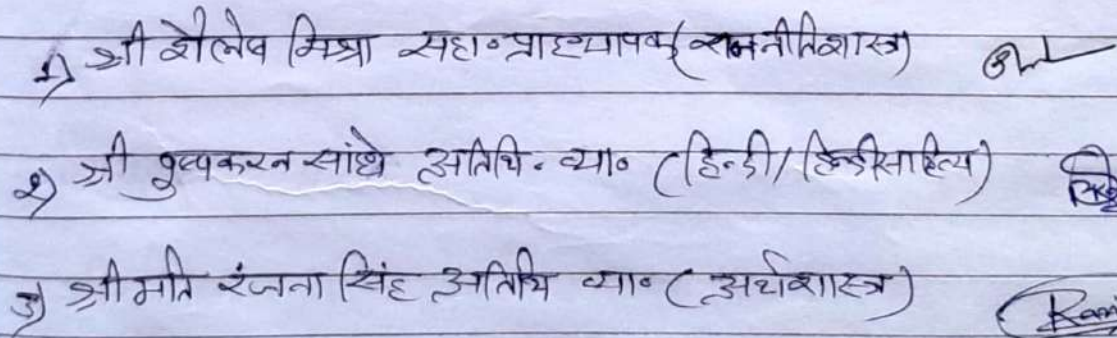 1) श्री शैलेष मिश्रा सहा॰ प्राध्यापक (राजनीतिशास्त्र)
2) श्री पुष्पकरन सांधे अतिथि. व्या॰ (हिन्दी/हिन्दीसाहित्य)
3) श्रीमति रंजना सिंह अतिथि व्या॰ (अर्थशास्त्र)